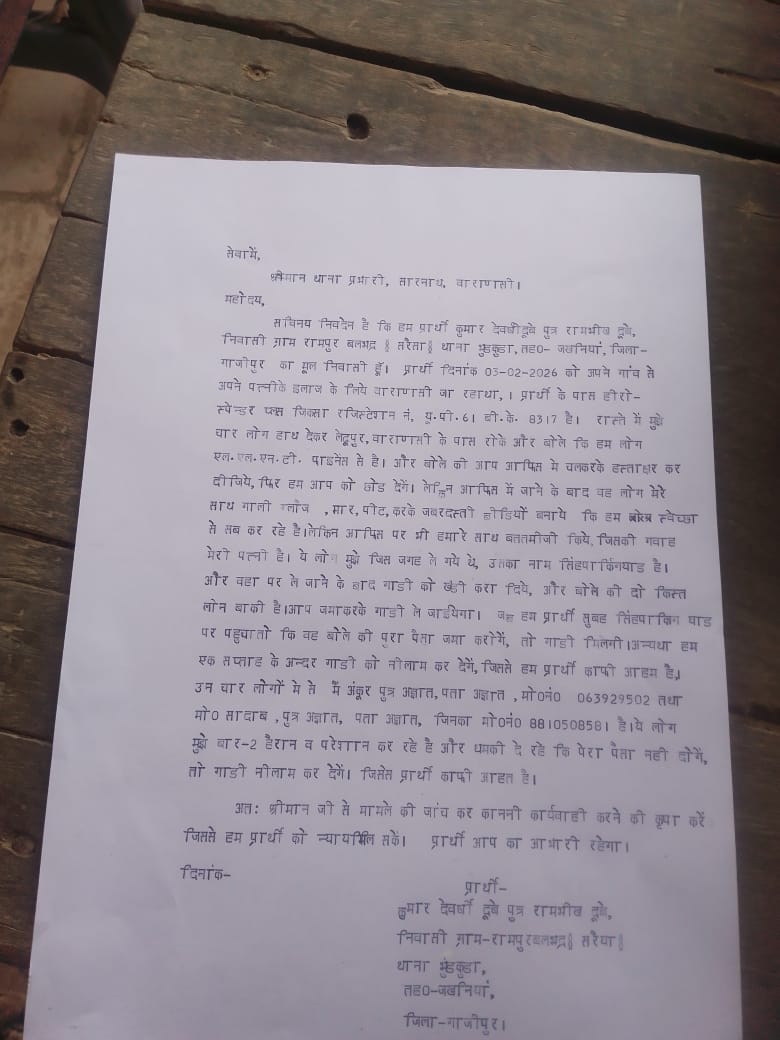 सेवामें,
श्रीमान थाना प्रभारी, सारनाथ, वाराणसी।
महोदय,
सविनय निवेदन है कि हम प्रार्थी कुमार देवर्षी दूबे पुत्र रामभीख दूबे,
निवासी ग्राम रामपुर बलभद्र § सरैसा§ थाना भुडकुडा, तह0- जखनियां, जिला-
गाजीपुर का मूल निवासी हूँ। प्रार्थी दिनांक 03-02-2026 को अपने गांव से
अपने पत्नीके इलाज के लिये वाराणसी जा रहाथा, । प्रार्थी के पास हीरो-
स्पेन्डर प्लस जिक्सा रजिस्टेशन नं, यू.पी.61 बी.के. 8317 है। रास्ते में मुझे
चार लोग हाथ देकर लेढूपुर, वाराणसी के पास रोके और बोले कि हम लोग
एल.एल.एन.टी. फाइनेंस से है। और बोले की आप आफिस मे चलकरके हस्ताक्षर कर
दीजिये, फिर हम आप को छोड देगें। लेकिन आफिस में जाने के बाद वह लोग मेरे
साथ गाली ग्लौज , मार, पीट, करके जबरदस्ती वीडियों बनाये कि हम स्वेच्छा
से सब कर रहे है।लेकिन आफिस पर भी हमारे साथ बततमीजी किये, जिसकी गवाह
मेरी पत्नी है। ये लोग मुझे जिस जगह ले गये थे, उसका नाम सिंहपार्किंगयाड है।
और वहा पर ले जाने के बाद गाडी को खडी करा दिये, और बोले की दो किस्त
लोन बाकी है।आप जमाकरके गाडी ले जाईयेगा। जब हम प्रार्थी सुबह सिंहपार्किंग याड
पर पहुचातो कि वह बोले की पुरा पैसा जमा करोगें, तो गाडी मिलगी।अन्यथा हम
एक सप्ताह के अन्दर गाडी को नीलाम कर देगें, जिससे हम प्रार्थी काफी आहम है,।
उन चार लोगों मे से मैं अंकूर पुत्र अज्ञात, पता अज्ञात , मो0नं0 063929502 तथा
मो0 सादाब , पुत्र अज्ञात, पता अज्ञात, जिनका मो0नं0 881050858। है।ये लोग
मुझे बार-2 हैरान व परेशान कर रहे है और धमकी दे रहे कि पेरा पैसा नही दोगें,
तो गाडी नीलाम कर देगें। जिसेस प्रार्थी काफी आहत है।
अत: श्रीमान जी से मामले की जांच कर काननी कार्यवाही करने की कृपा करें
जिससे हम प्रार्थी को न्यायमिल सकें। प्रार्थी आप का आभारी रहेगा।
दिनांक-
प्रार्थी-
कुमार देवर्षी दूबे पुत्र रामभीख दूबे,
निवासी ग्राम-रामपुरबलभद्र§ सरैया§
थाना भुंडकुडा,
तह0-जखनियां,
जिला-गाजीपुर।